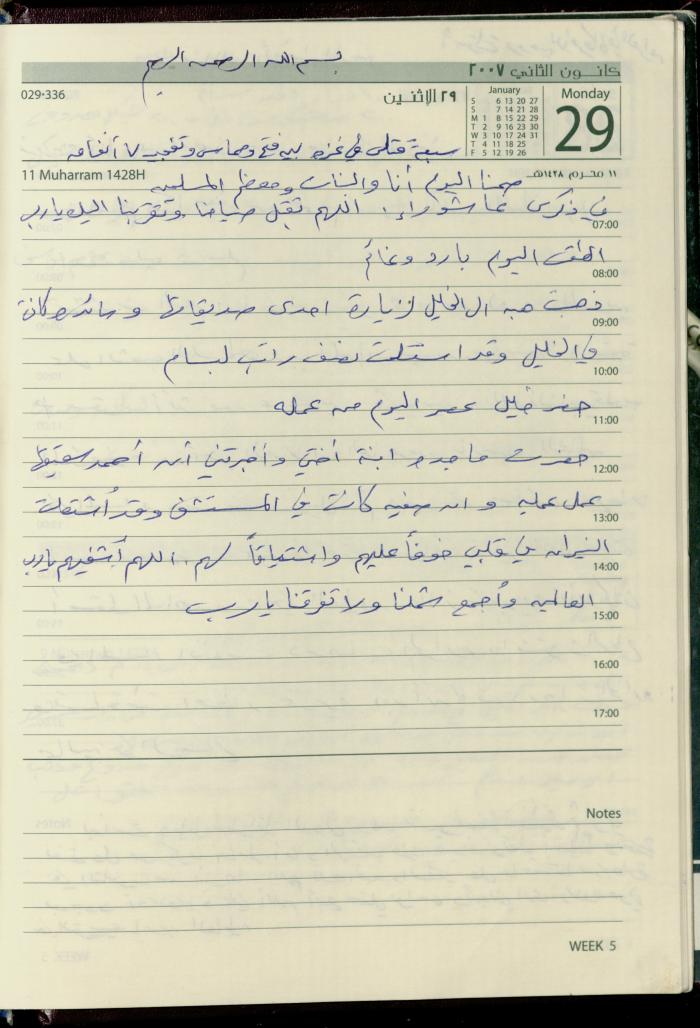 بسم الله الرحمن الرحيم
كانون الثاني ٢٠٠٧
029-336
٢٩ الاثنين
January
S 6 13 20 27
S 7 14 21 28
M 1 8 15 22 29
T 2 9 16 23 30
W 3 10 17 24 31
T 4 11 18 25
F 5 12 19 26
Monday
29
سبعة قتلى في غزه بين فتح وحماس وتفجير ٧ أنفاق
11 Muharram 1428H
١١ محرم ١٤٢٨هـ
صمنا اليوم أنا والبنات ومعظم المسلمين
في ذكرى عاشوراء. اللهم تقبل صيامنا وتقربنا اليك يارب
07:00
الطقس اليوم بارد وغائم
08:00
ذهبت هبه الى الخليل لزيارة احدى صديقاتها وسائده كانت
09:00
في الخليل وقد استلمت نصف راتب لبسام
10:00
حضر خليل عصر اليوم من عمله
11:00
حضرت ماجده ابنة أختي وأخبرتني أن أحمد شقيقها
12:00
عمل عمليه وان صفيه كانت في المستشفى وقد أشتعلت
13:00
النيران في قلبي خوفاً عليهم واشتياقاً لهم. اللهم أشفيهم يارب
14:00
العالمين وأجمع شملنا ولا تفرقنا يارب
15:00
16:00
17:00
Notes
WEEK 5